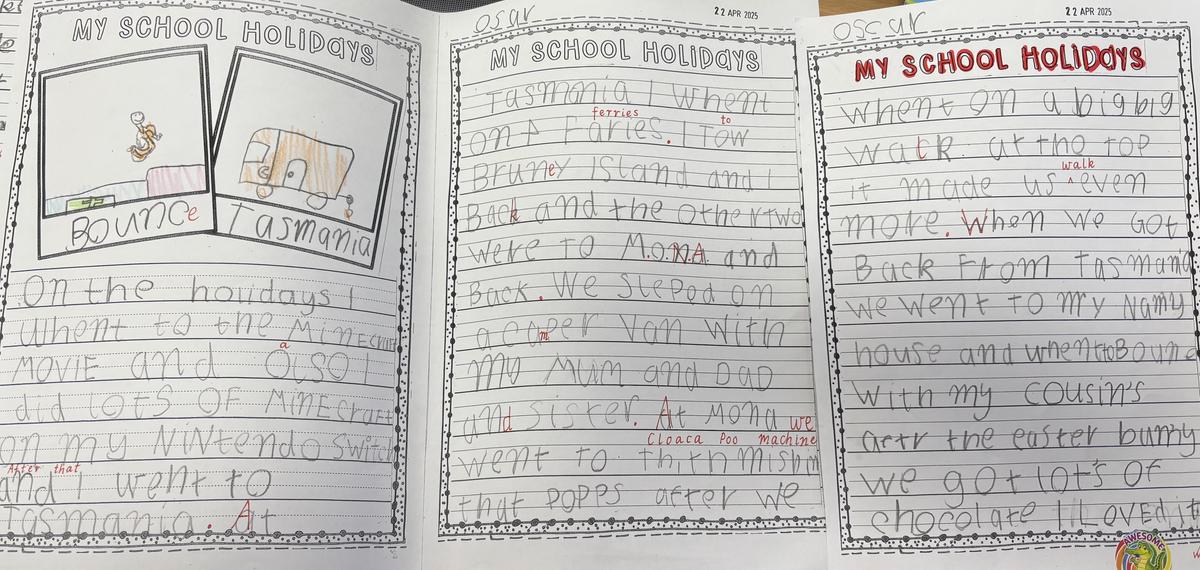 MY SCHOOL HOLIDAYS
BOUNCe
Tasmania
On the holidays I
whent to the MiNECraft
MOVIE and OlSO I
a
did lOTS OF MiNECraft
on my NiNtendo Switch
After that
and I went to
Tasmania. At
Oscar
22 APR 2025
MY SCHOOL HOLIDAYS
Tasmania I whent
ferries
to
on Faries. I Tow
Bruney Island and I
Back and the other two
were to M.O.N.A. and
Back. We Steped on
a camper Van with
my Mum and DaD
and Sister. At Mona we
Cloaca Poo machine
went to mishin
that POPPS after we
Oscar
22 APR 2025
MY SCHOOL HOLIDAYS
when t on a big big
watk. at tho TOP
walk
it made us even
more. When we GOt
Back From Tasmana
we went to my Namy
house and when to Bounc
with my COUSiN'S
actr the easter bunny
we got lot's of
chocolate I lOVED it
AWESOME